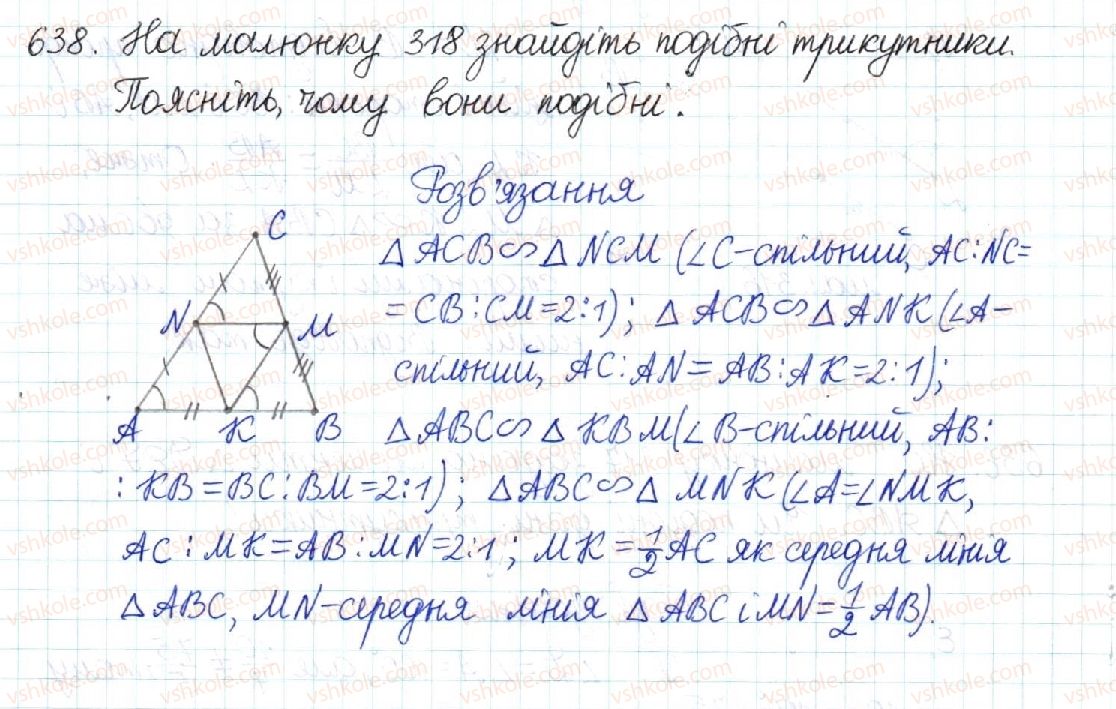 638. На малюнку 318 знайдіть подібні трикутники.
Поясніть, чому вони подібні.
Розв'язання
△ ACB ∾ △ NCM (∠C-спільний, AC:NC=
= CB:CM=2:1); △ ACB ∾ △ ANK (∠A-
спільний, AC:AN = AB:AK=2:1);
△ ABC ∾ △ KBM (∠B-спільний, AB:
:KB=BC:BM=2:1); △ ABC ∾ △ MNK (∠A=∠NMK,
AC:MK=AB:MN=2:1; MK=1/2 AC як середня лінія
△ ABC, MN-середня лінія △ ABC і MN=1/2 AB).
C
N
M
A
K
B
vshkole.com